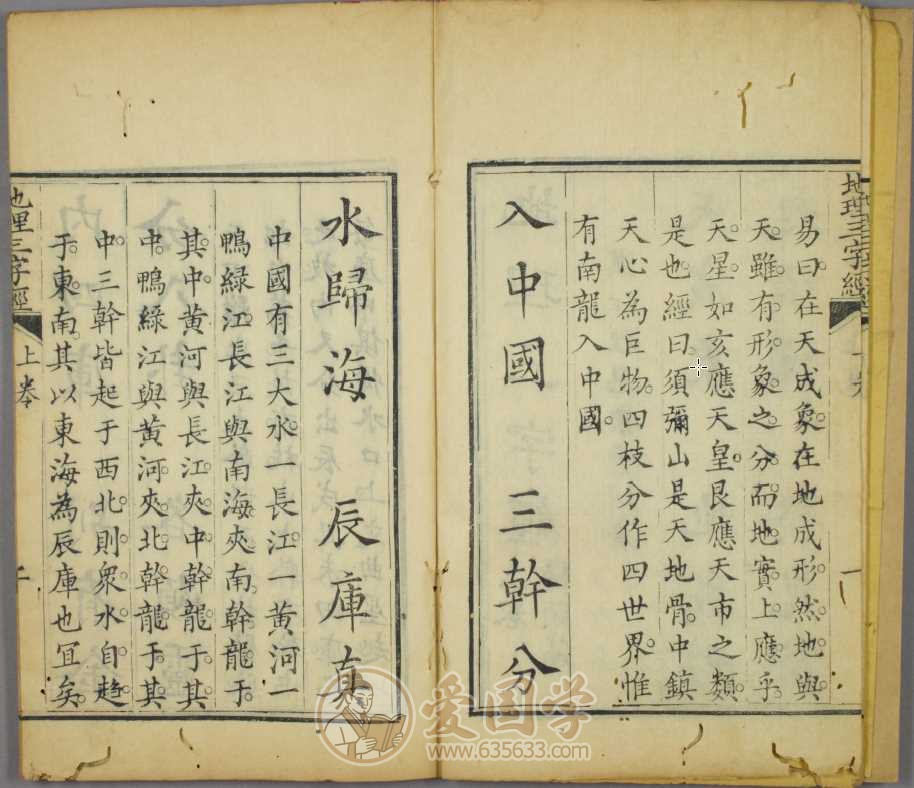 地理三字經
易曰在天成象在地成形然地與
天雖有形象之分而地實上應乎
天星如亥應天皇艮應天市之類
是也經曰須彌山是天地骨中鎮
天心為巨物四枝分作四世界惟
有南龍入中國
入中國 三幹分
水歸海 辰庫真
中國有三大水一長江一黃河一
鴨綠江長江與南海夾南幹龍于
其中黃河與長江夾中幹龍于其
中鴨綠江與黃河夾北幹龍于其
中三幹皆起于西北則衆水自趋
于東南其以東海為辰庫也宜矣
地理三字經 上卷
爱国学
www.635633.com